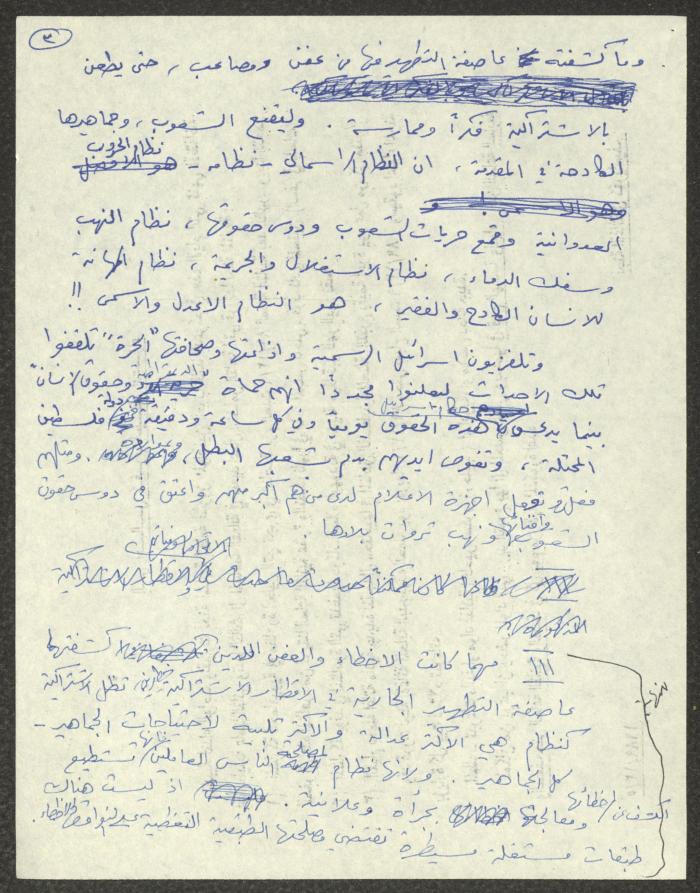 ٣
وما كشفته عاصفة التطهير فيها من عفن ومصاعب ، حتى يطعن
بالاشتراكية فكراً وممارسة . وليقنع الشعوب ، وجماهيرها
نظام الحروب
الكادحة في المقدمة ، ان النظام الرأسمالي - نظامه -
العدوانية وقمع حريات الشعوب ودوس حقوقها ، نظام النهب
وسفك الدماء ، نظام الاستغلال والجريمة ، نظام اهانة
للانسان الكادح والفقير ، هو النظام الاعدل والاسمى !!
وتلفزيون اسرائيل الرسمية واذاعتها وصحافتها "الحرة" تلقفوا
تلك الاحداث ليعلنوا مجدداً انهم حماة وحقوق الانسان"
بينما يدعس حكام اسرائيل هذه الحقوق يومياً وفي كل ساعة ودقيقة فلسطين
المحتلة ، وتغوص ايديهم بدم شعبها البطل ، . ومثلهم
فعل وتفعل اجهزة الاعلام لدى من هم اكبر منهم واعتق في دوس حقوق
الشعوب وافنائها ونهب ثروات بلادها .
III مهما كانت الاخطاء والعفن اللذين كشفتهما
عاصفة التطهير الجارية في الاقطار الاشتراكية ، تظل الاشتراكية
كنظام هي الاكثر عدالة والاكثر تلبية لاحتياجات الجماهير -
كل الجماهير . ولانها نظام لمصلحة الناس العاملين تستطيع
الكشف عن اخطائها ومعالجتها بجرأة وعلانية . اذ ليست هناك
طبقات مستغلة مسيطرة تقتضي مصلحتها الطبقية التغطية على النواقص والاخطاء